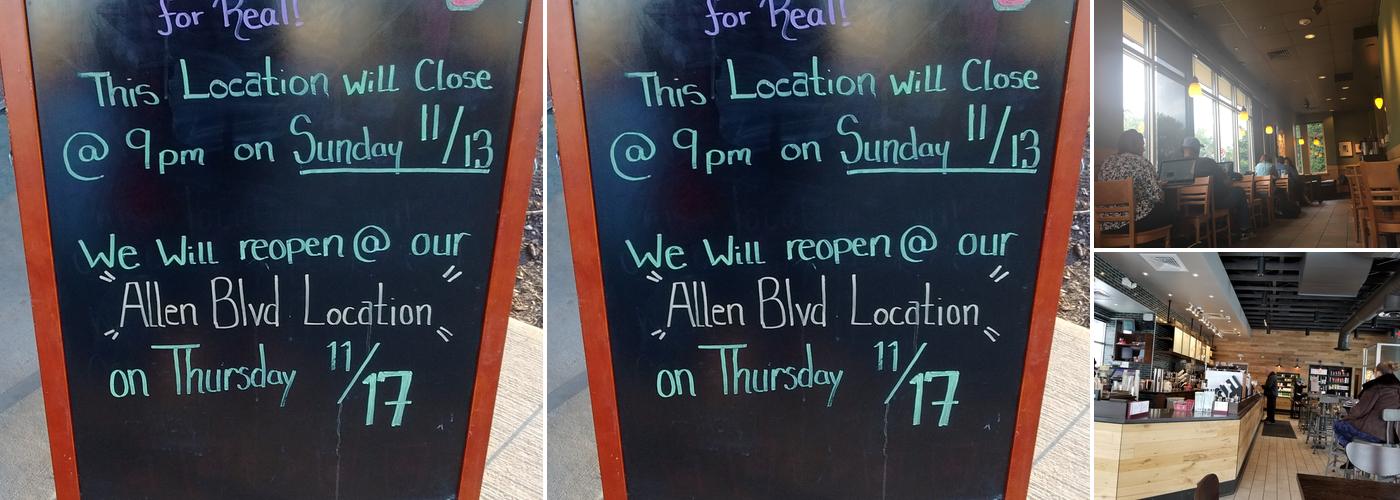 for Real!
This Location will Close
@ 9pm on Sunday 11/13
We Will reopen @ our
"Allen Blvd Location"
on Thursday 11/17
for Real!
This Location will Close
@ 9pm on Sunday 11/13
We Will reopen @ our
"Allen Blvd Location"
on Thursday 11/17